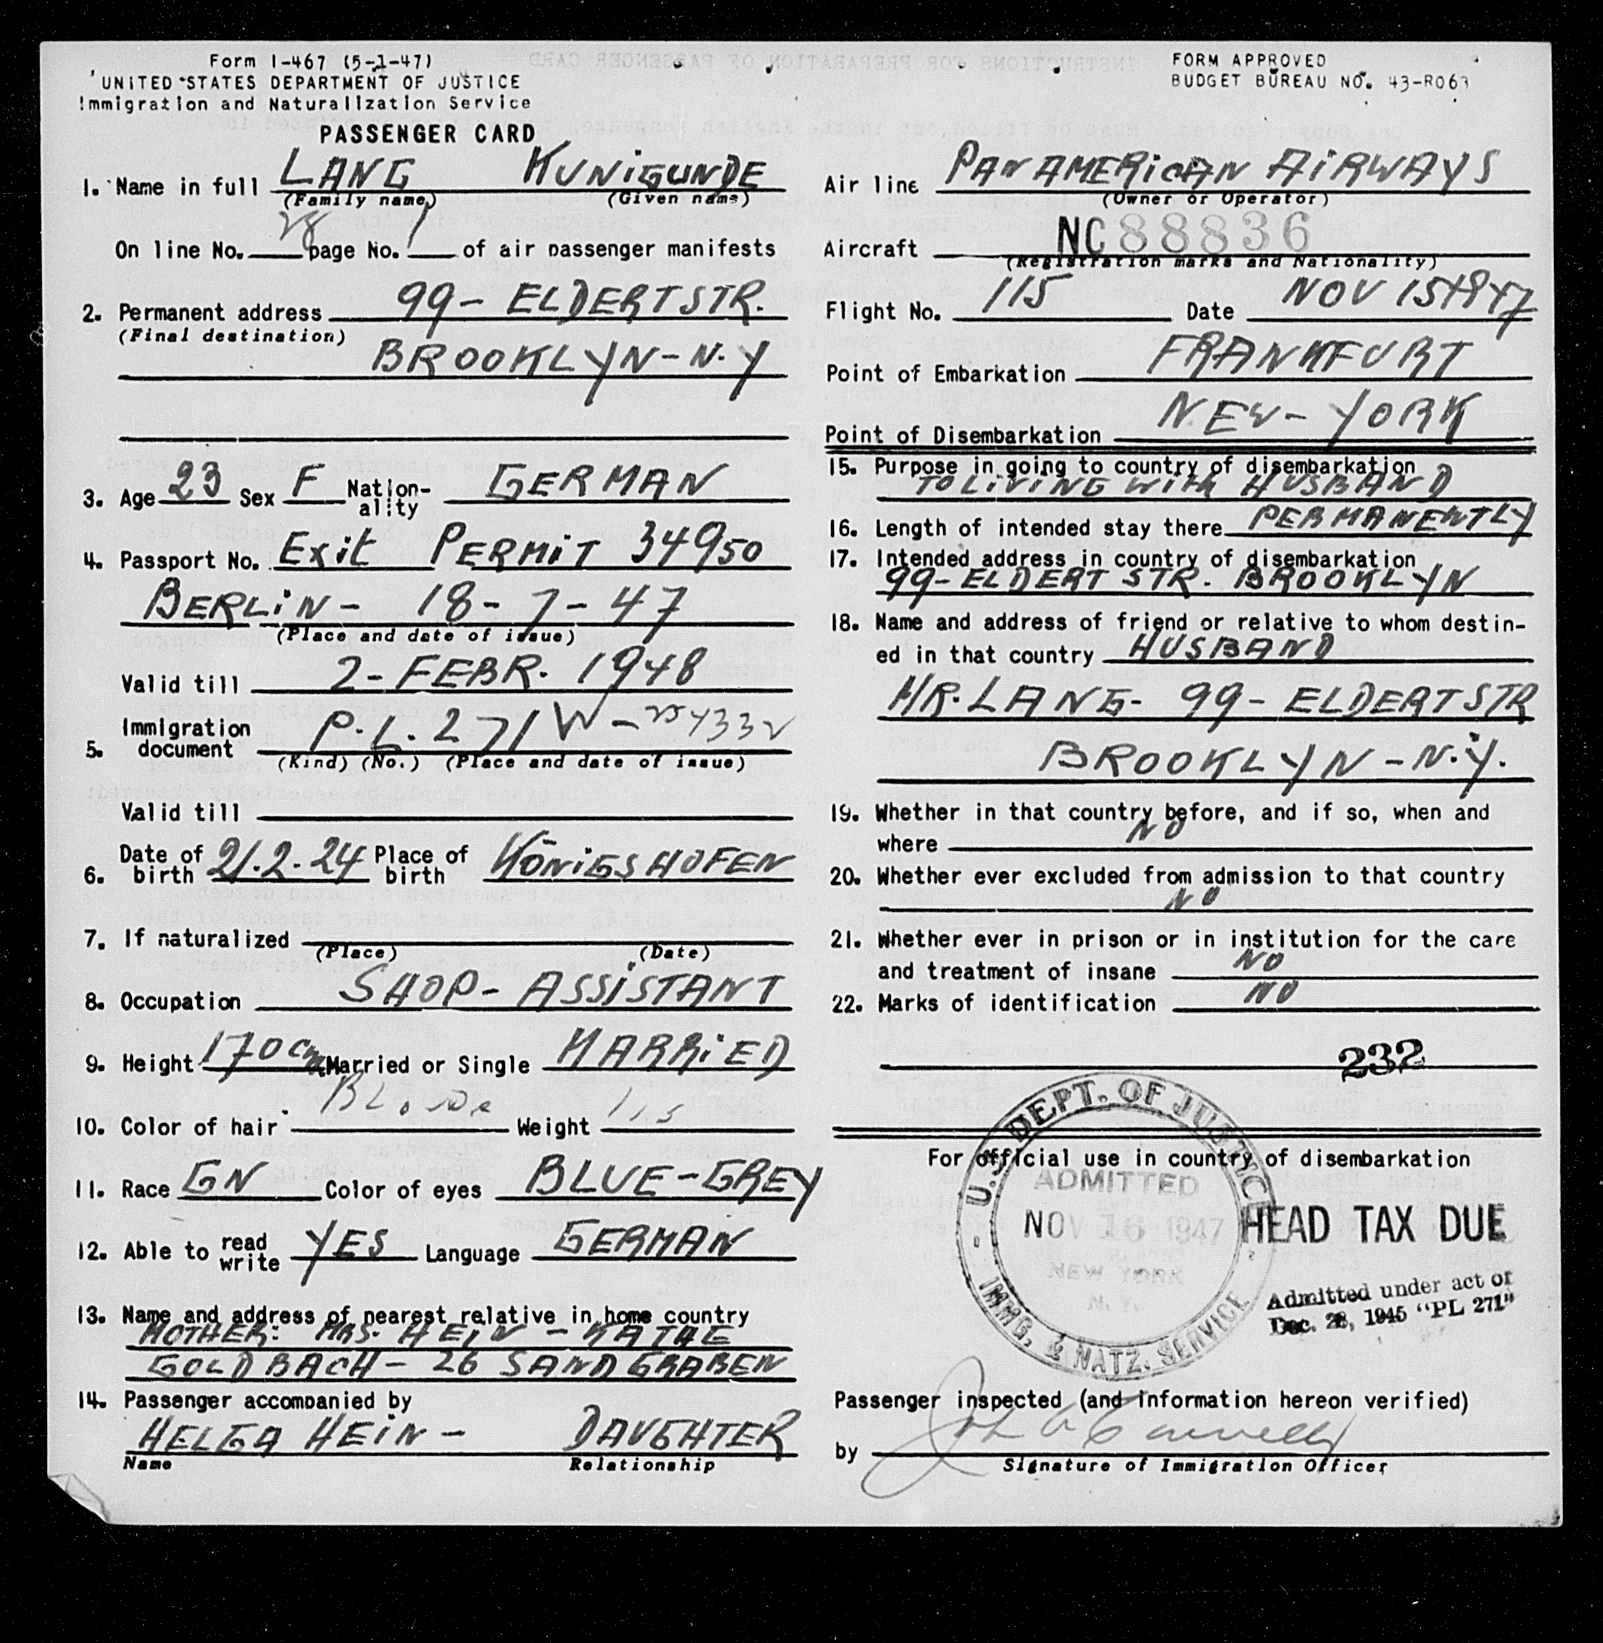 Form I-467 (5-1-47)
UNITED STATES DEPARTMENT OF JUSTICE
Immigration and Naturalization Service
PASSENGER CARD
FORM APPROVED
BUDGET BUREAU NO. 43-R063
1. Name in full LANG KUNIGUNDE
(Family name) (Given name)
On line No. 28 page No. 1 of air passenger manifests
2. Permanent address 99 - ELDERTSTR.
(Final destination)
BROOKLYN - N.Y
3. Age 23 Sex F Nation-ality GERMAN
4. Passport No. Exit PERMIT 34950
BERLIN - 18-7-47
(Place and date of issue)
Valid till 2-FEBR. 1948
5. Immigration document P.L. 271 W-
(Kind) (No.) (Place and date of issue)
Valid till
6. Date of birth 21.2.24 Place of birth KÖNIGSHOFEN
7. If naturalized
(Place) (Date)
8. Occupation SHOP-ASSISTANT
9. Height 170 cm Married or Single MARRIED
10. Color of hair Weight 115
11. Race GN Color of eyes BLUE-GREY
12. Able to read write YES Language GERMAN
13. Name and address of nearest relative in home country
MOTHER: MRS. HEIN - KATHE
GOLDBACH - 26 SANDGRABEN
14. Passenger accompanied by
HELGA HEIN - DAUGHTER
Name Relationship
Air line PANAMERICAN AIRWAYS
(Owner or Operator)
Aircraft NC 88836
(Registration marks and Nationality)
Flight No. 115 Date NOV 15TH 47
Point of Embarkation FRANKFURT
Point of Disembarkation NEW-YORK
15. Purpose in going to country of disembarkation
TO LIVING WITH HUSBAND
16. Length of intended stay there PERMANENTLY
17. Intended address in country of disembarkation
99-ELDERT STR. BROOKLYN
18. Name and address of friend or relative to whom destin-
ed in that country HUSBAND
MR. LANG - 99 - ELDERTSTR
BROOKLYN - N.Y.
19. Whether in that country before, and if so, when and
where NO
20. Whether ever excluded from admission to that country
NO
21. Whether ever in prison or in institution for the care
and treatment of insane NO
22. Marks of identification NO
232
For official use in country of disembarkation
U.S. DEPT. OF JUSTICE
ADMITTED
NOV 16 1947
NEW YORK
N.Y.
IMMG. & NATZ. SERVICE
HEAD TAX DUE
Admitted under act of
Dec. 28, 1945 "PL 271"
Passenger inspected (and information hereon verified)
by
Signature of Immigration Officer